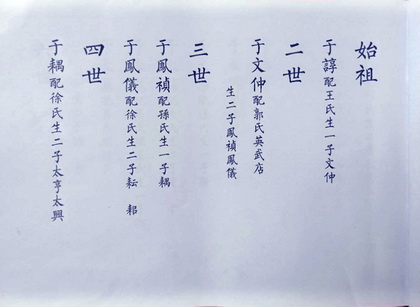 始祖
于諄配王氏生一子文仲
二世
于文仲配郭氏英武店
生二子鳳禎鳳儀
三世
于鳳禎配孫氏生一子耦
于鳳儀配徐氏生二子耘 耜
四世
于耦配徐氏生二子太亨太興